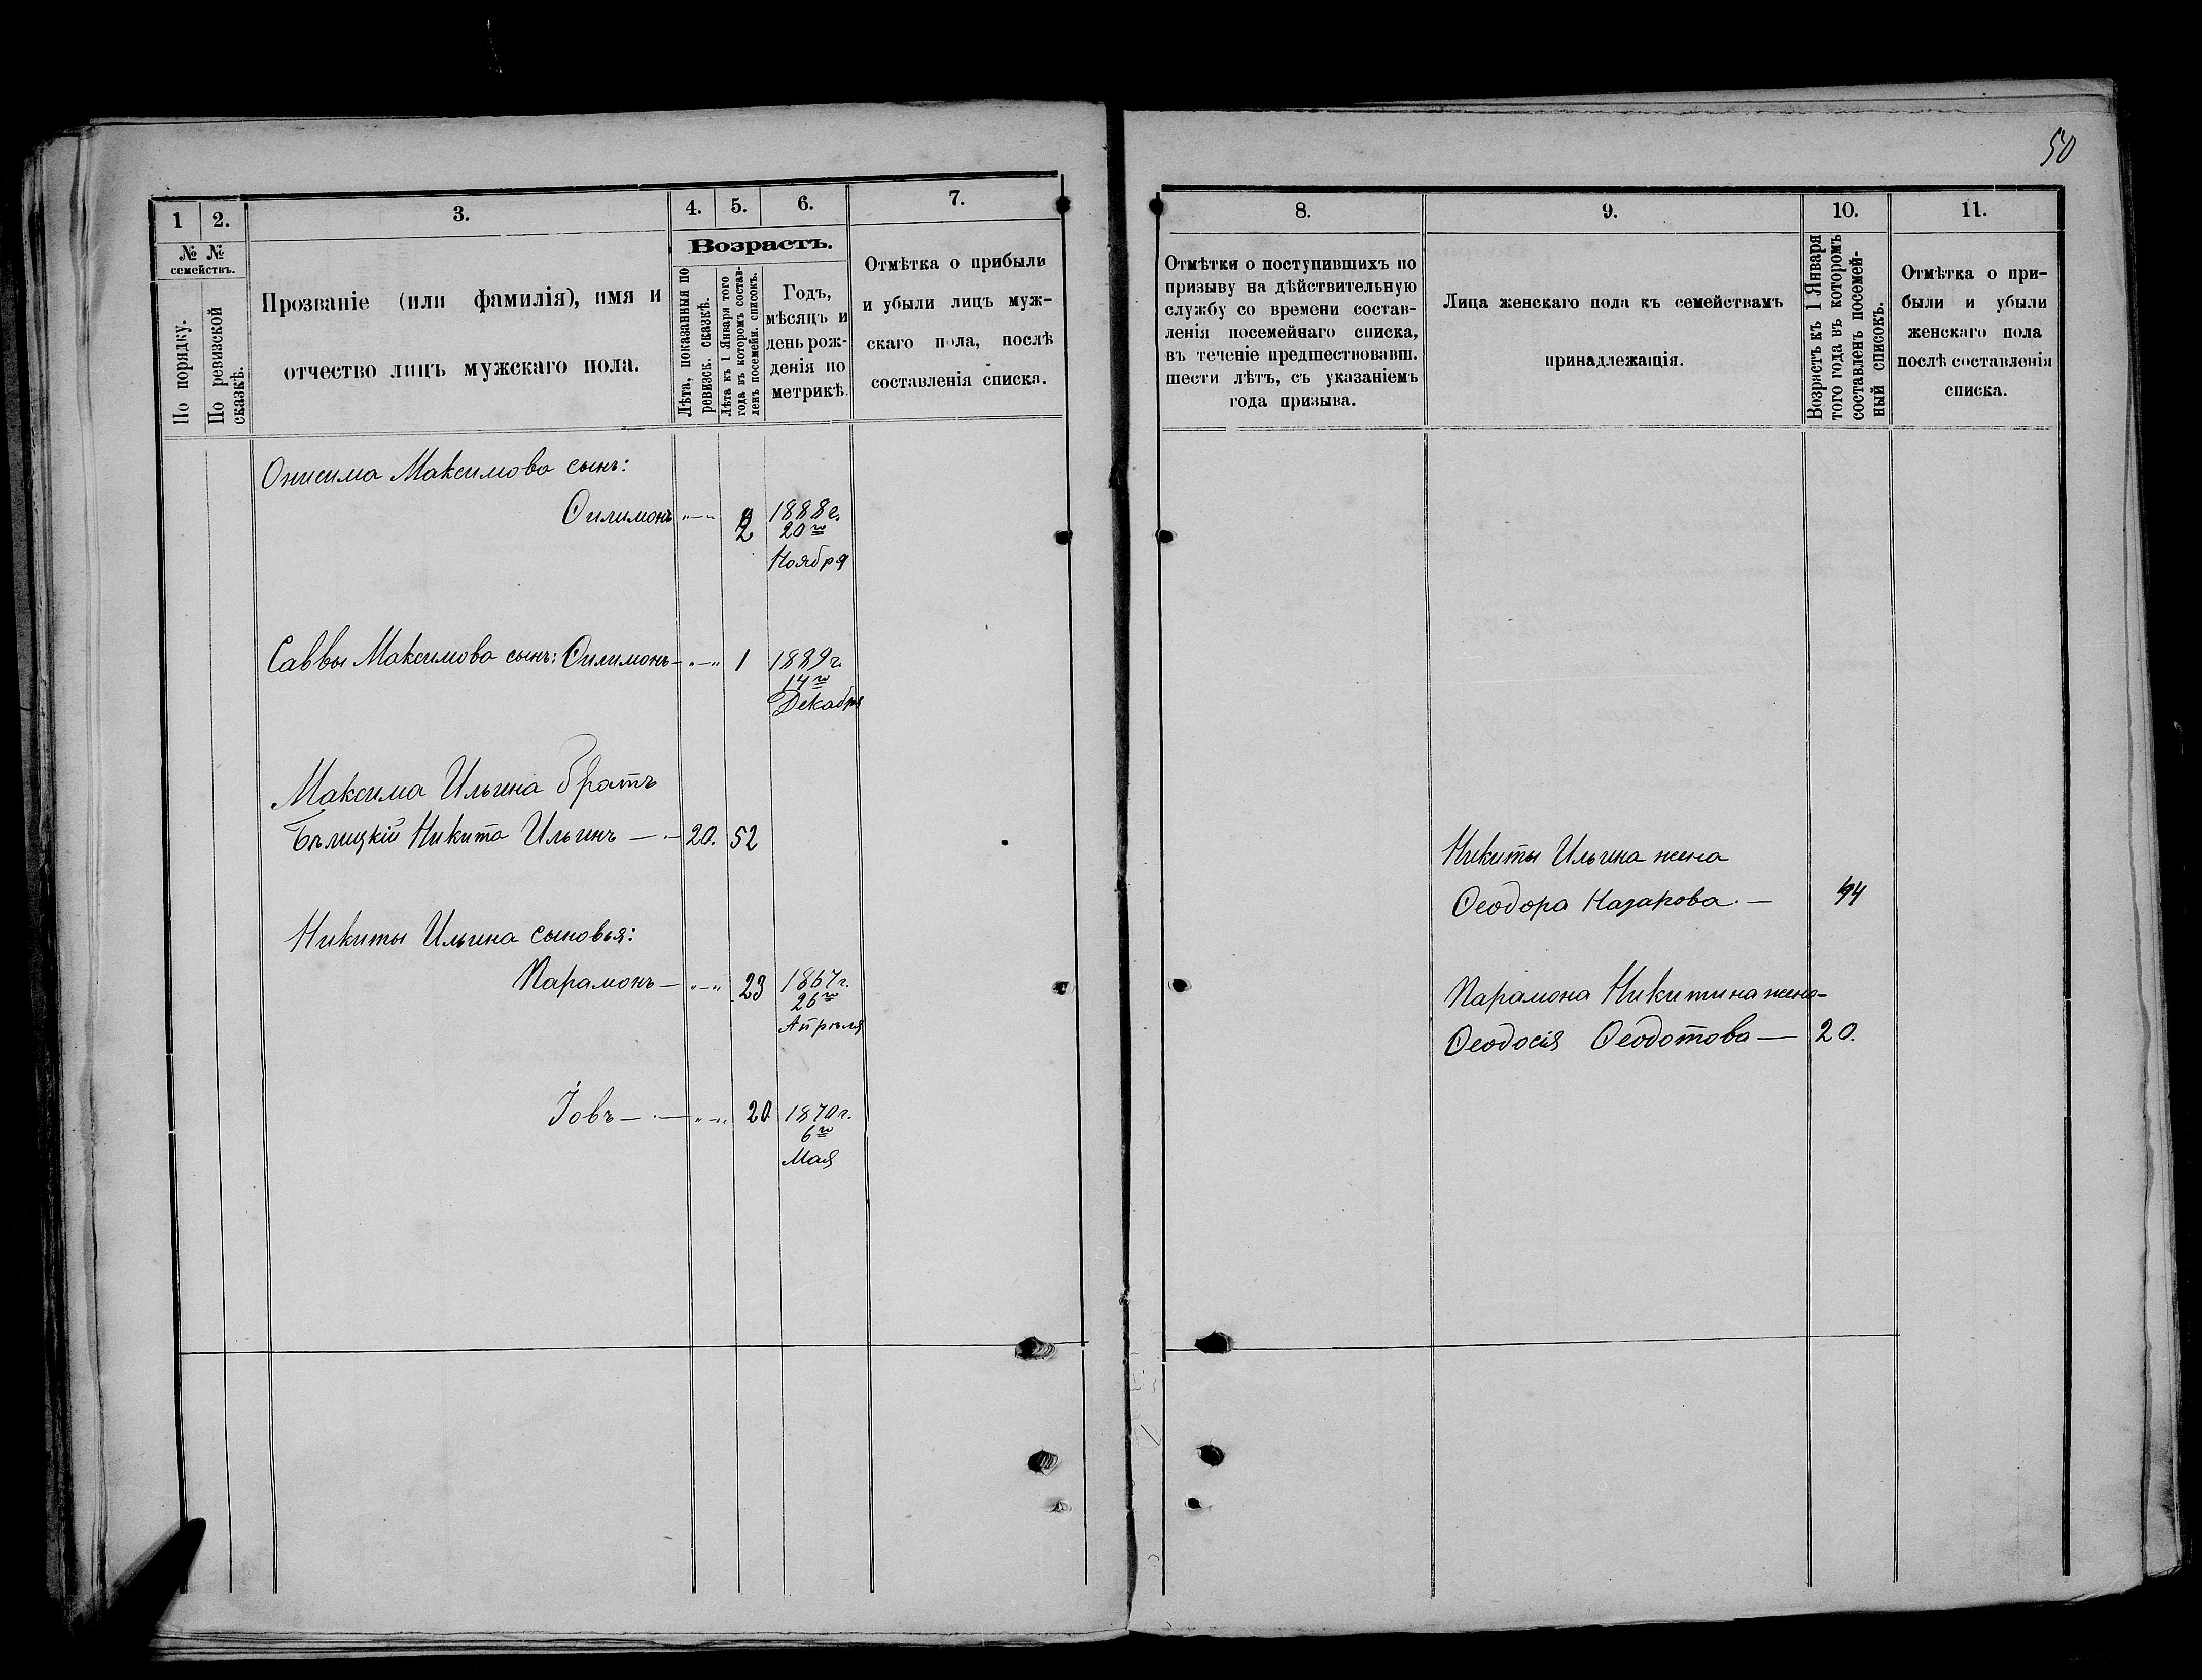 50
1
2.
3.
4.
5.
6.
7.
№ №
семействъ.
По порядку.
По ревизской
сказкѣ.
Прозваніе (или фамилія), имя и
отчество лицъ мужскаго пола.
Возрастъ.
Лѣта, показанныя по
ревизск. сказкѣ.
Лѣта къ 1 Января того
года въ которомъ состав-
ленъ посемейн. списокъ.
Годъ,
мѣсяцъ и
день рож-
денія по
метрикѣ
Отмѣтка о прибыли
и убыли лицъ муж-
скаго пола, послѣ
составленія списка.
Онисима Максимова сынъ:
Ѳилимонъ "—" 2 1888 г.
20го
Ноября
Саввы Максимова сынъ: Ѳилимонъ — "—" 1 1889 г.
14го
Декабря
Максима Ильина братъ
Бѣлицкій Никита Ильинъ — . — 20. 52
Никиты Ильина сыновья:
Парамонъ — "—" 23 1867 г.
26го
Апрѣля
Іовъ — . — "—" 20 1870 г.
6го
Мая
8.
9.
10.
11.
Отмѣтки о поступившихъ по
призыву на дѣйствительную
службу со времени состав-
ленія посемейнаго списка,
въ теченіе предшествовавш.
шести лѣтъ, съ указаніемъ
года призыва.
Лица женскаго пола къ семействамъ
принадлежащія.
Возрастъ къ 1 Января
того года въ которомъ
составленъ посемей-
ный списокъ.
Отмѣтка о при-
были и убыли
женскаго пола
послѣ составленія
списка.
Никиты Ильина жена
Ѳеодора Назарова. — 44
Парамона Никитина жена —
Ѳеодосія Ѳеодотова — 20.